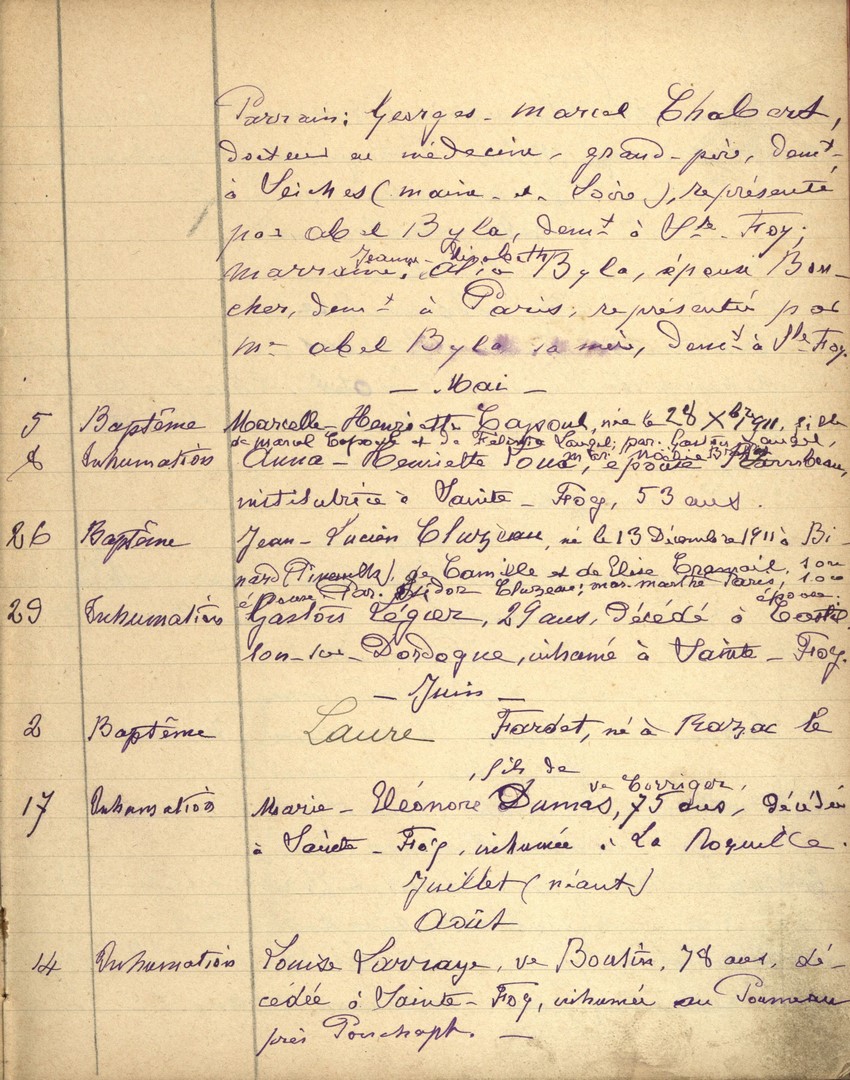 Parrain: Georges-Marcel Chabert,
docteur en médecine, grand-père, demt
à Seiches (Maine-et-Loire), représenté
par Abel Byla, demt à Ste-Foy;
Jeanne-
marraine: Byla, épouse Bou-
cher, demt à Paris, représentée par
Me Abel Byla sa mère, demt à Ste-Foy.
— Mai —
5 Baptême Marcelle-Henriette Capoul, née le 28 Xbre 1911, fille
de Marcel Capoul et de Laugel; par. Gaston Laugel,
8 Inhumation Anna-Henriette épouse
institutrice à Sainte-Foy, 53 ans.
26 Baptême Jean-Lucien Cluzeau, né le 13 Décembre 1911 à Bi-
nard (Pineuilh), de Camille et de Elise son
épouse. Par. Isidor Cluzeau; mar. Marthe Paris, son
épouse.
29 Inhumation Gaston Légier, 29 ans, décédé à Castil
lon-sur-Dordogne, inhumé à Sainte-Foy.
— Juin —
2 Baptême Laure Fardet, né à Razac le
, fils de
ve Corriger,
17 Inhumation Marie-Eléonore Dumas, 75 ans, décédée
à Sainte-Foy, inhumée à La Roquille.
Juillet (néant)
Août
14 Inhumation Louise Larraye, ve Boutin, 78 ans, dé-
cédée à Sainte-Foy, inhumée au Pourneau
près Ponchapt. —